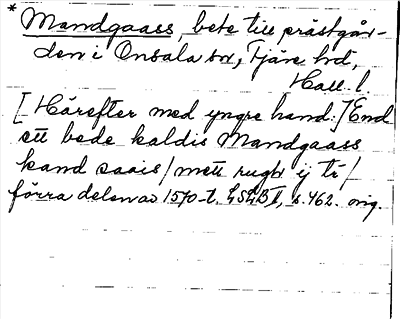 * Mandgaass, bete till prästgår-
den i Onsala sn, Fjäre hd,
Hall. l.
[Härefter med yngre hand:] End
ett bede kaldis Mandgaass
kand saais / mett rugh ij tr /
förra delen av 1570-t. s. 462. orig.